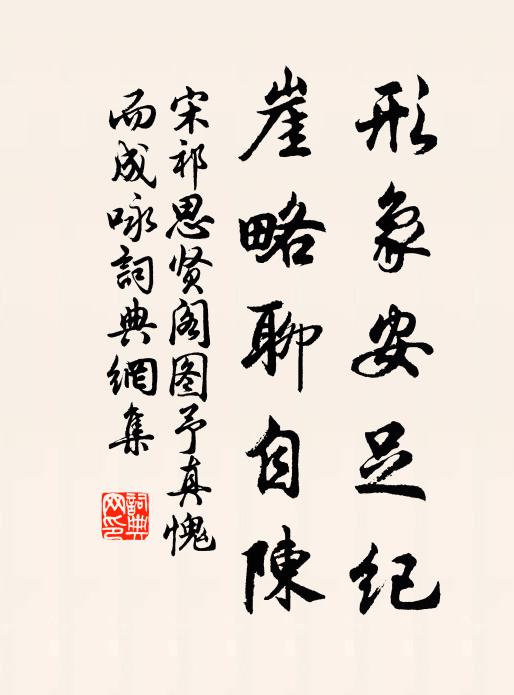 形象安足纪
崖略聊自陳
宋祁思贤阁图予真愧
而成咏詞典網集
詞典
网印